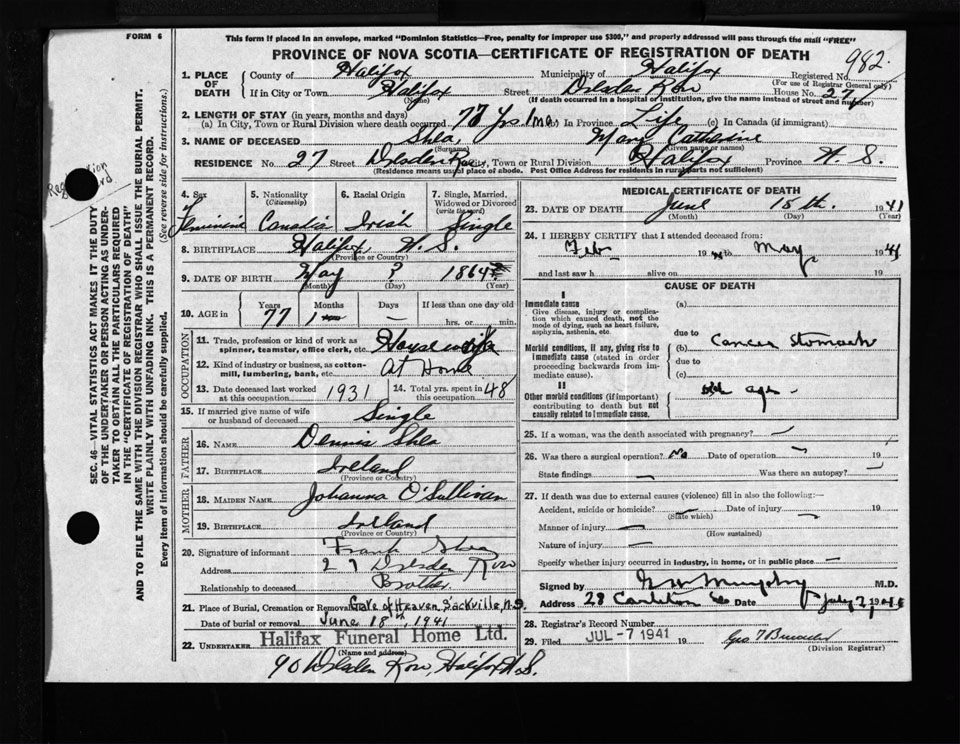 FORM 6
This form if placed in an envelope, marked "Dominion Statistics—Free, penalty for improper use $300," and properly addressed will pass through the mail "FREE"
PROVINCE OF NOVA SCOTIA—CERTIFICATE OF REGISTRATION OF DEATH
982
1. PLACE OF DEATH County of Halifax Municipality of Halifax Registered No.
(For use of Registrar General only)
If in City or Town Halifax Street Dresden Row House No. 27
(Name) (If death occurred in a hospital or institution, give the name instead of street and number)
2. LENGTH OF STAY (in years, months and days)
(a) In City, Town or Rural Division where death occurred 77 Yrs. 1 mo. In Province Life (c) In Canada (if immigrant)
3. NAME OF DECEASED Shea, Mary Catherine
(Surname) (Given name or names)
RESIDENCE No. 27 Street Dresden Row City, Town or Rural Division Halifax Province N. S.
(Residence means usual place of abode. Post Office Address for residents in rural parts not sufficient)
SEC. 46—VITAL STATISTICS ACT MAKES IT THE DUTY
OF THE UNDERTAKER OR PERSON ACTING AS UNDER-
TAKER TO OBTAIN ALL THE PARTICULARS REQUIRED
IN THE "CERTIFICATE OF REGISTRATION OF DEATH"
AND TO FILE THE SAME WITH THE DIVISION REGISTRAR WHO SHALL ISSUE THE BURIAL PERMIT.
WRITE PLAINLY WITH UNFADING INK. THIS IS A PERMANENT RECORD.
Every item of information should be carefully supplied. (See reverse side for instructions.)
4. Sex 5. Nationality (Citizenship) 6. Racial Origin 7. Single, Married, Widowed or Divorced (write the word)
Canadian Irish Single
8. BIRTHPLACE Halifax N. S.
(Province or Country)
9. DATE OF BIRTH May ? 1864
(Month) (Day) (Year)
10. AGE in Years Months Days If less than one day old
77 1 — hrs. or min.
OCCUPATION
11. Trade, profession or kind of work as spinner, teamster, office clerk, etc. Housewife
12. Kind of industry or business, as cotton-mill, lumbering, bank, etc. At Home
13. Date deceased last worked at this occupation 1931 14. Total yrs. spent in this occupation 48
15. If married give name of wife or husband of deceased Single
FATHER
16. NAME Dennis Shea
17. BIRTHPLACE Ireland
(Province or Country)
MOTHER
18. MAIDEN NAME Johanna O'Sullivan
19. BIRTHPLACE Ireland
(Province or Country)
20. Signature of informant Frank Shea
Address 27 Dresden Row
Relationship to deceased Brother
21. Place of Burial, Cremation or Removal Gate of Heaven, Sackville, N.S.
Date of burial or removal June 18th, 1941
22. UNDERTAKER Halifax Funeral Home Ltd.
(Name and address)
90 Dresden Row, Halifax N. S.
MEDICAL CERTIFICATE OF DEATH
23. DATE OF DEATH June 15th. 1941
(Month) (Day) (Year)
24. I HEREBY CERTIFY that I attended deceased from:
Feb 19 to May 1941
and last saw h alive on 19
CAUSE OF DEATH
I
Immediate cause (a)
Give disease, injury or complication which caused death, not the mode of dying, such as heart failure, asphyxia, asthenia, etc.
due to
Morbid conditions, if any, giving rise to immediate cause (stated in order proceeding backwards from immediate cause). (b) Cancer Stomach
due to
(c)
II
Other morbid conditions (if important) contributing to death but not causally related to immediate cause. old age
25. If a woman, was the death associated with pregnancy? —
26. Was there a surgical operation? No Date of operation — 19
State findings — Was there an autopsy? —
27. If death was due to external causes (violence) fill in also the following:—
Accident, suicide or homicide? — Date of injury — 19
(State which)
Manner of injury —
(How sustained)
Nature of injury —
Specify whether injury occurred in industry, in home, or in public place —
Signed by G W Murphy M.D.
Address 28 Carlton St Date July 2, 1941
28. Registrar's Record Number
29. Filed JUL -7 1941 19
(Division Registrar)